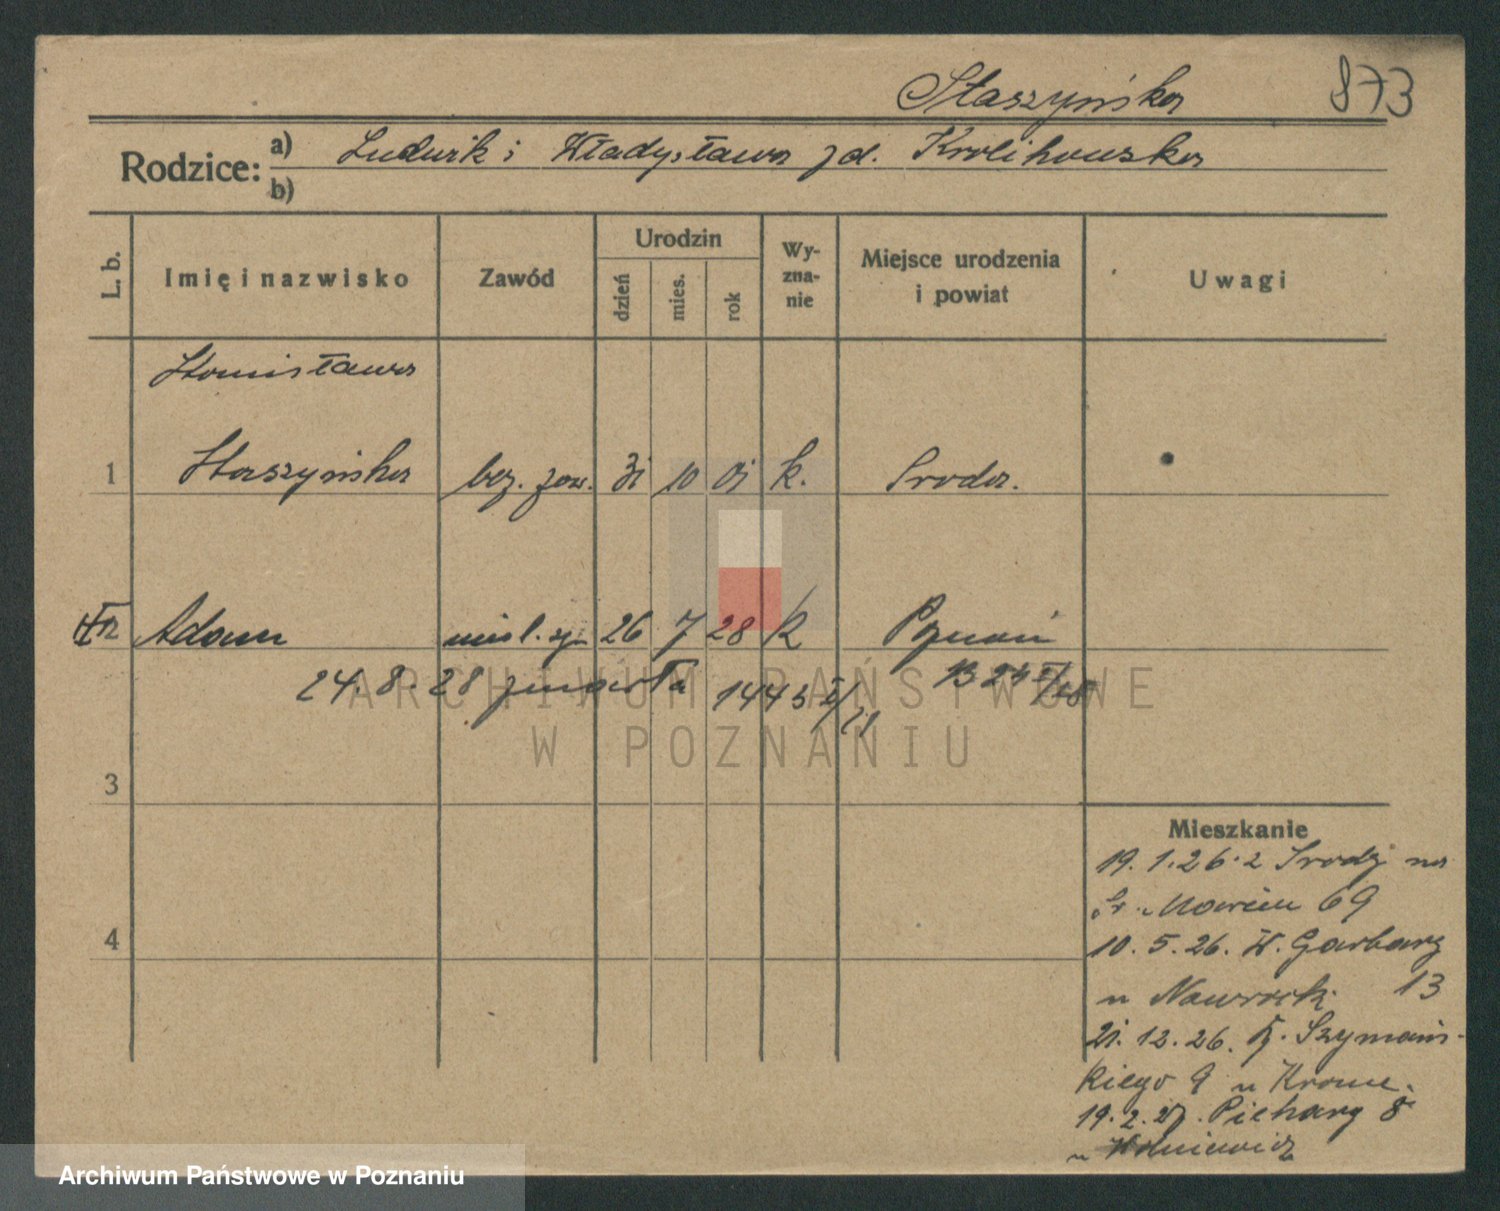 Staszyńska 873
Rodzice: a) Ludwik i Władysława zd. Krolikowska
b)
L. b. Imię i nazwisko Zawód Urodzin dzień mies. rok Wyznanie Miejsce urodzenia i powiat Uwagi
Stanisława
1 Staszyńska bez. zaw. 31 10 01 k. Sroda.
2 Adam 26 7 28 k Poznań
24. 8. 28 zmarła 1443
ARCHIWUM PAŃSTWOWE
W POZNANIU
3
Mieszkanie
19. 1. 26. z Srody na
Św. Marcin 69
4
10. 5. 26. W. Garbary
u Nawrock. 13
21. 12. 26. Szymańs-
kiego 9 u
19. 2. 27. Piekary 8
u
Archiwum Państwowe w Poznaniu